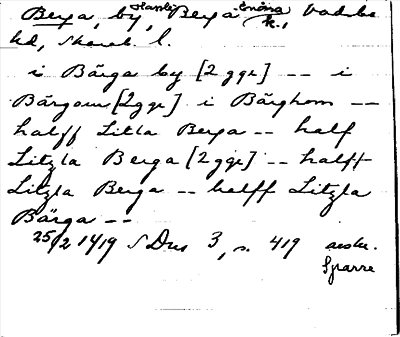 Berga, by, Berga k., Vadsbo
hd, Skarab. l.
i Bärga by [2 ggr] -- i
Bärgom [2 ggr] i Bärghom --
halff Litla Berga -- half
Litzla Berga [2 ggr] -- halff
Litzla Berga -- halff Litzla
Bärga --
25/2 1419 SDns 3, s. 419
Sparre